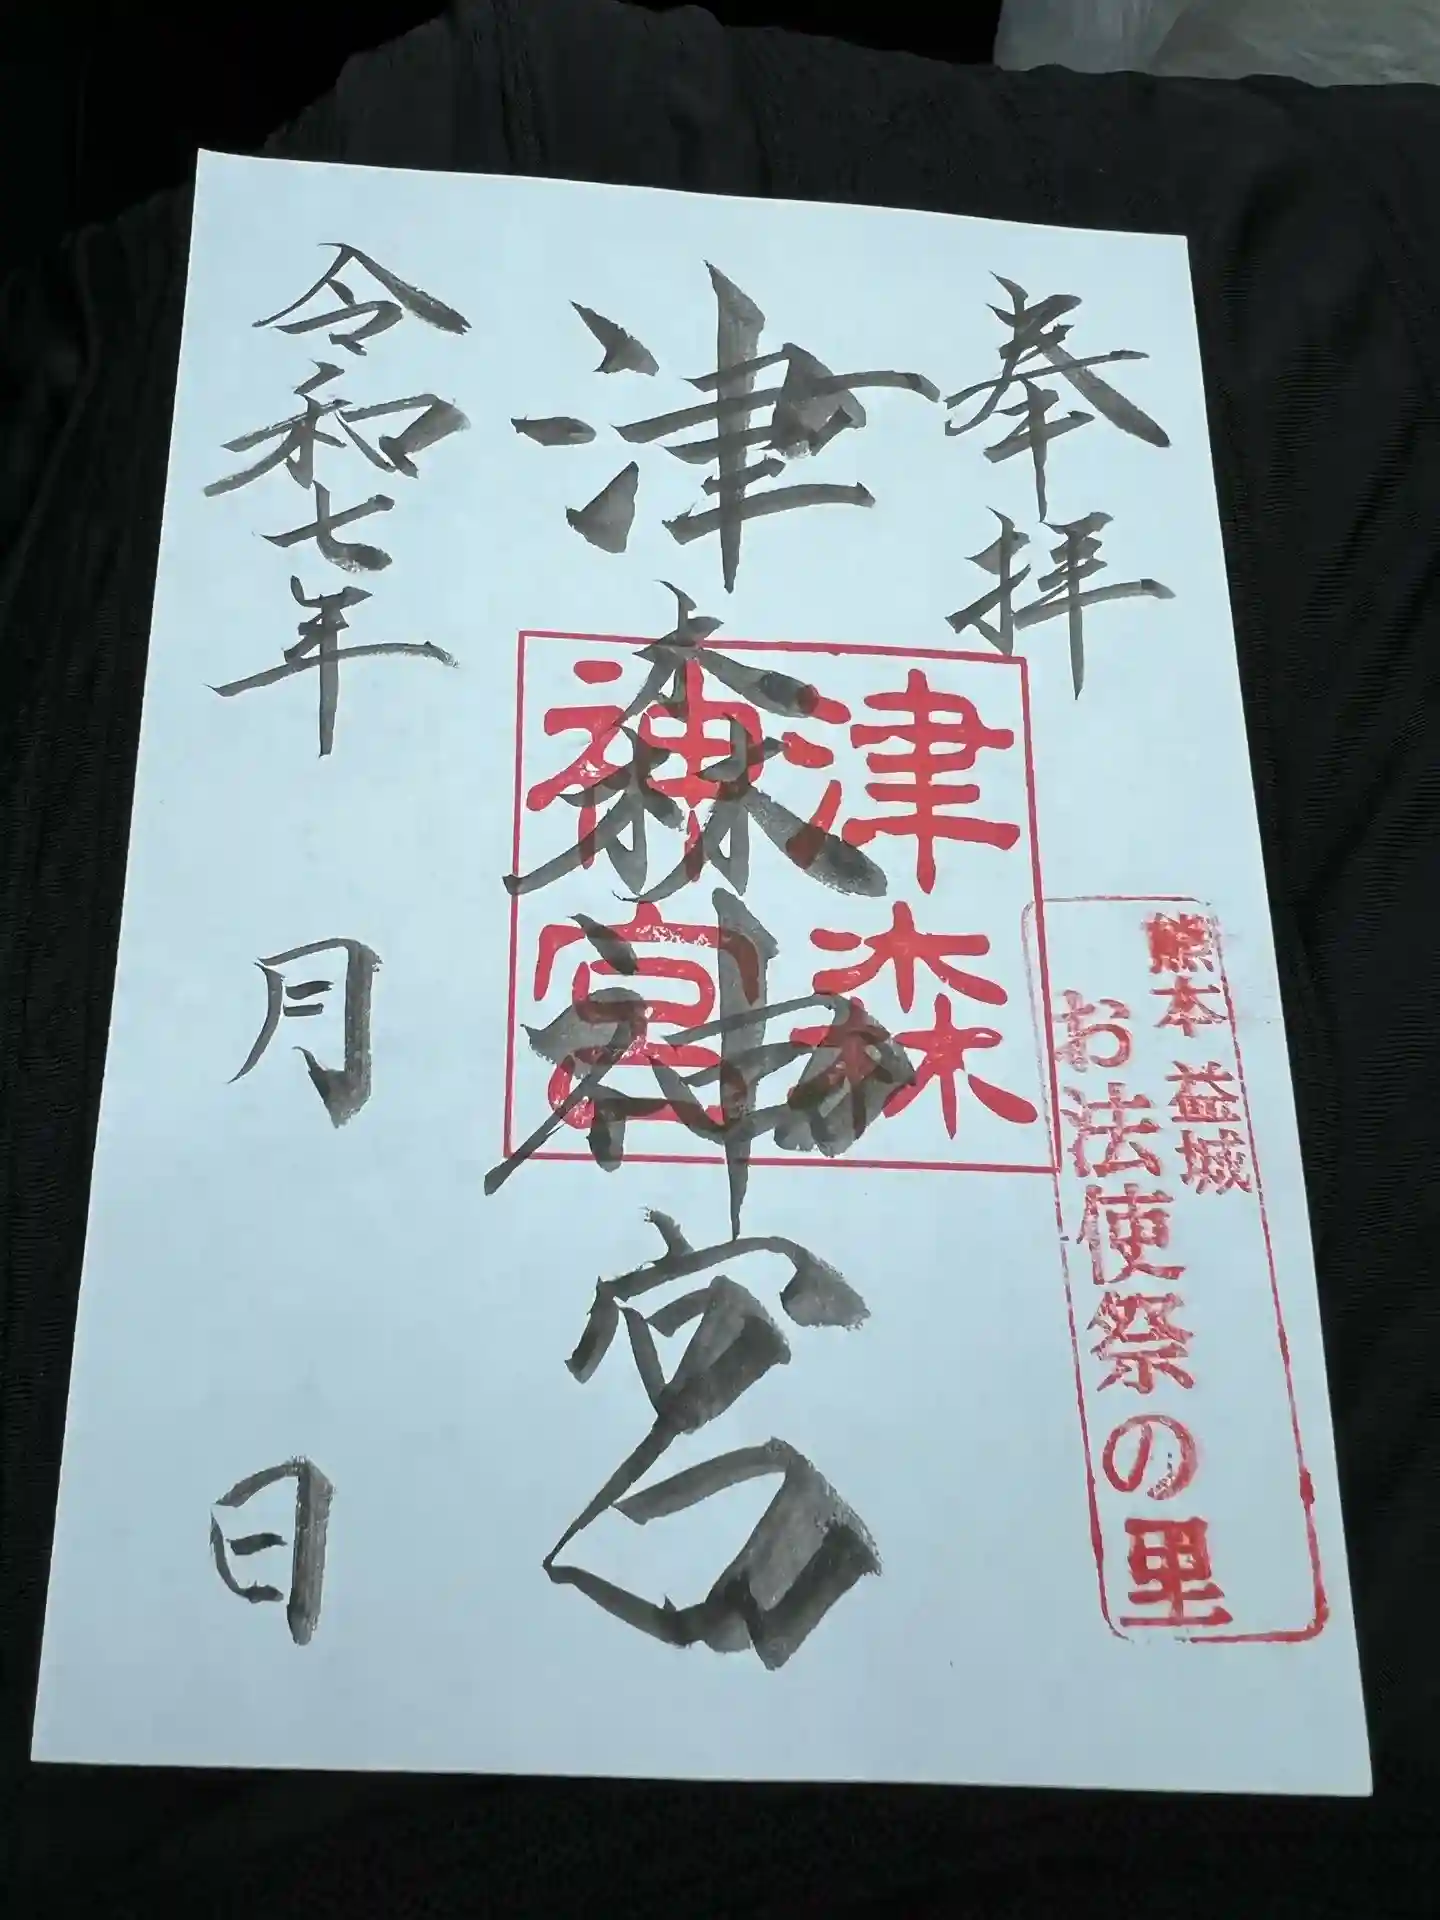 奉拝
熊本 益城
お法使祭の里
津森神宮
津森
神宮
令和七年 月 日